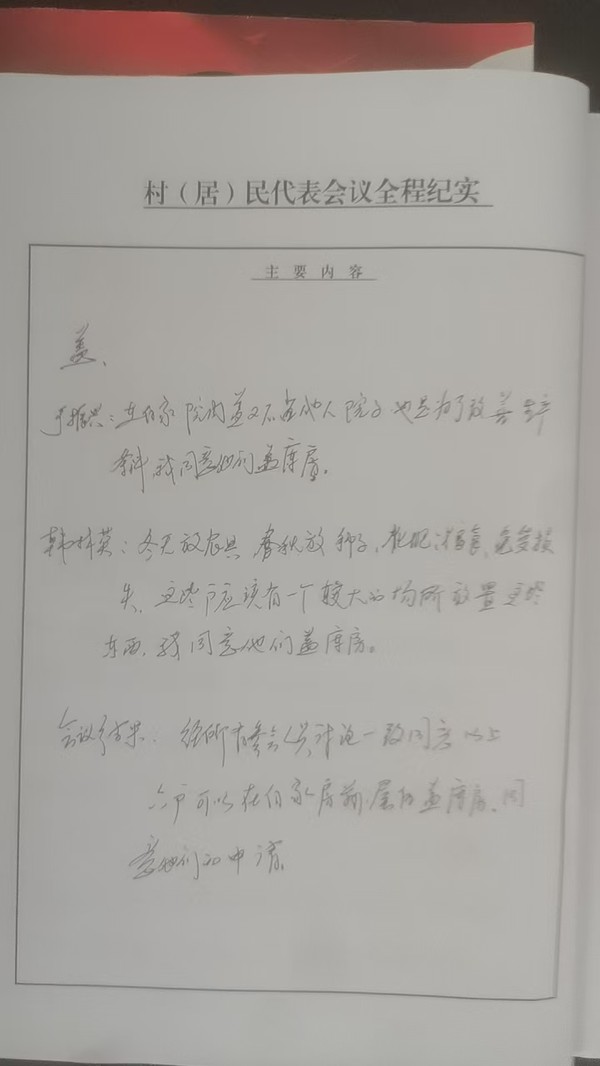 村（居）民代表会议全程纪实
主要内容
盖、
振兴：在自家院内盖又不占他人院子也是为了改善生产
条件我同意他们盖库房。
韩林英：冬天放农具，春秋放种子，化肥、粮食，免受损
失，这些户应该有一个较大的场所放置这些
东西，我同意他们盖库房。
会议结果：经所有参会人员讨论一致同意以上
六户可以在自家房前屋后盖库房，同
意他们的申请。